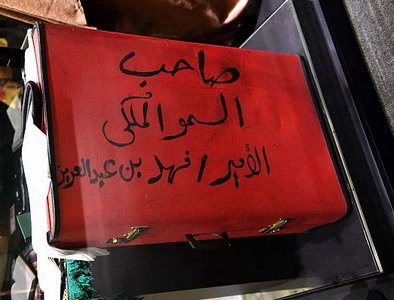 صاحب
السمو الملكي
الأمير / فهد بن عبد العزيز